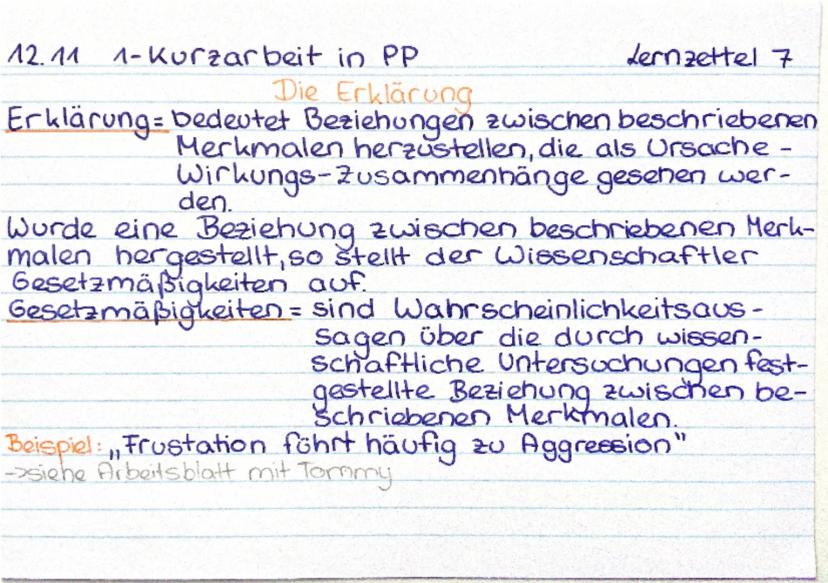 12.11 1-Kurzarbeit in PP Lernzettel 7
Die Erklärung
Erklärung= bedeutet Beziehungen zwischen beschriebenen
Merkmalen herzustellen, die als Ursache-
Wirkungs-Zusammenhänge gesehen wer-
den.
Wurde eine Beziehung zwischen beschriebenen Merk-
malen hergestellt, so stellt der Wissenschaftler
Gesetzmäßigkeiten auf.
Gesetzmäßigkeiten = sind Wahrscheinlichkeitsaus-
sagen über die durch wissen-
schaftliche Untersuchungen fest-
gestellte Beziehung zwischen be-
schriebenen Merkmalen.
Beispiel: „Frustation führt häufig zu Aggression"
->siehe Arbeitsblatt mit Tommy